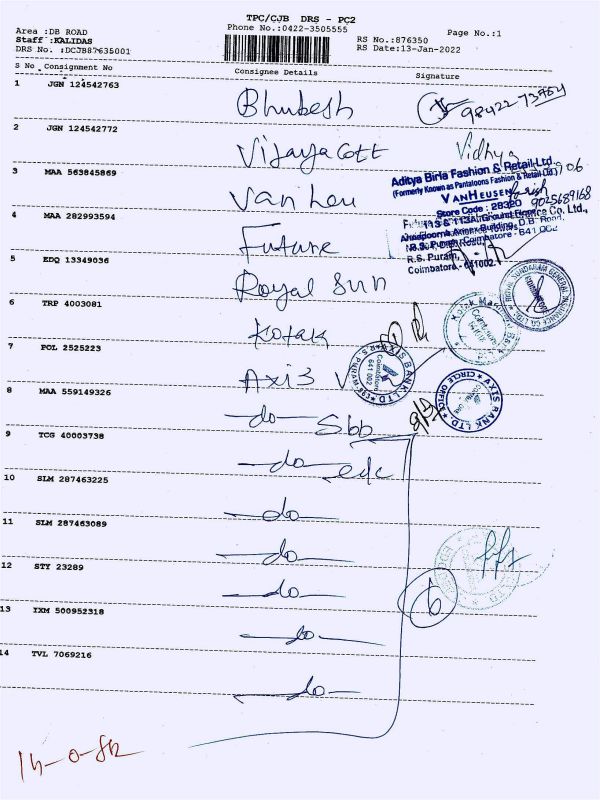 TPC/CJB DRS - PC2
Area :DB ROAD
Phone No.:0422-3505555
Page No.:1
Staff :KALIDAS
RS No.:876350
DRS No. :DCJB87635001
RS Date:13-Jan-2022
S No Consignment No Consignee Details Signature
1 JGN 124542763
Bhubesh 98422-73764
2 JGN 124542772
Vijaya Cott Vidhya
3 MAA 563845869
Van heu
Aditya Birla Fashion & Retail Ltd.,
(Formerly Known as Pantaloons Fashion & Retail Ltd.)
VANHEUSEN
Store Code : 28320 9025689168
4 MAA 282993594
Future
R.S. Puram, Coimbatore - 641 002
R.S. Puram,
Coimbatore - 641002.
5 EDQ 13349036
Royal Sun
ROYAL SUNDARAM GENERAL INSURANCE CO. LTD.
6 TRP 4003081
Kotak
7 POL 2525223
Axis
AXIS BANK LTD R.S. PURAM
Coimbatore
641 002
8 MAA 559149326
-do- Sbb
AXIS BANK LTD CIRCLE OFFICE
9 TCG 40003738
-do- edc
10 SLM 287463225
-do-
11 SLM 287463089
-do-
12 STY 23289
-do-
6
13 IXM 500952318
-do-
14 TVL 7069216
-do-